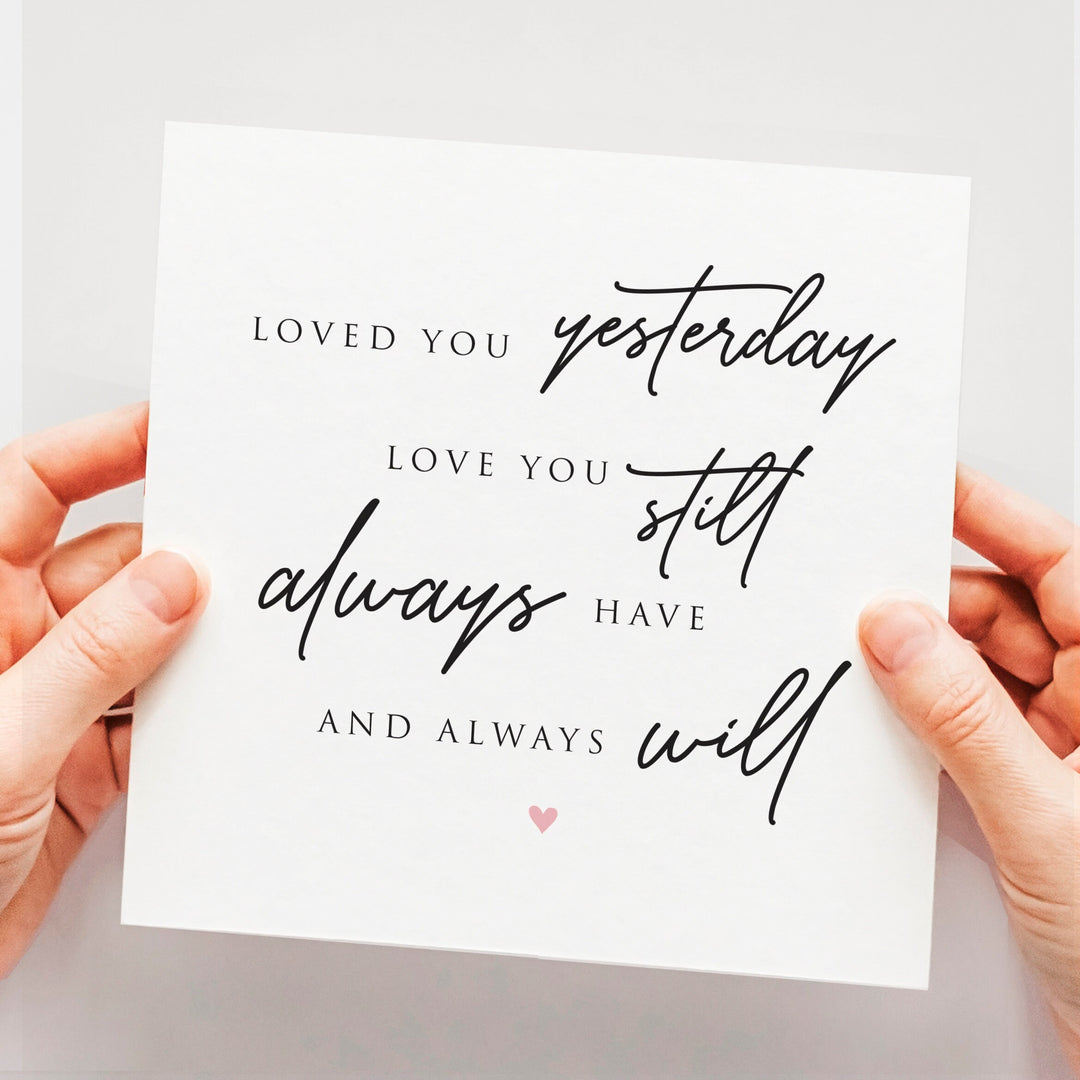 LOVED YOU yesterday
LOVE YOU still
always HAVE
AND ALWAYS will